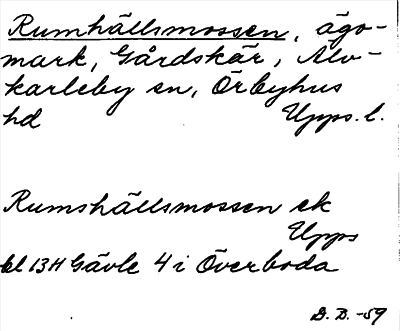 Rumhällsmossen, ägo-
mark, Gårdskär, Älv-
karleby sn, Örbyhus
hd Upps. l.
Rumshällsmossen ek
Upps
bl 13H Gävle 4 i Överboda
D. D. -59